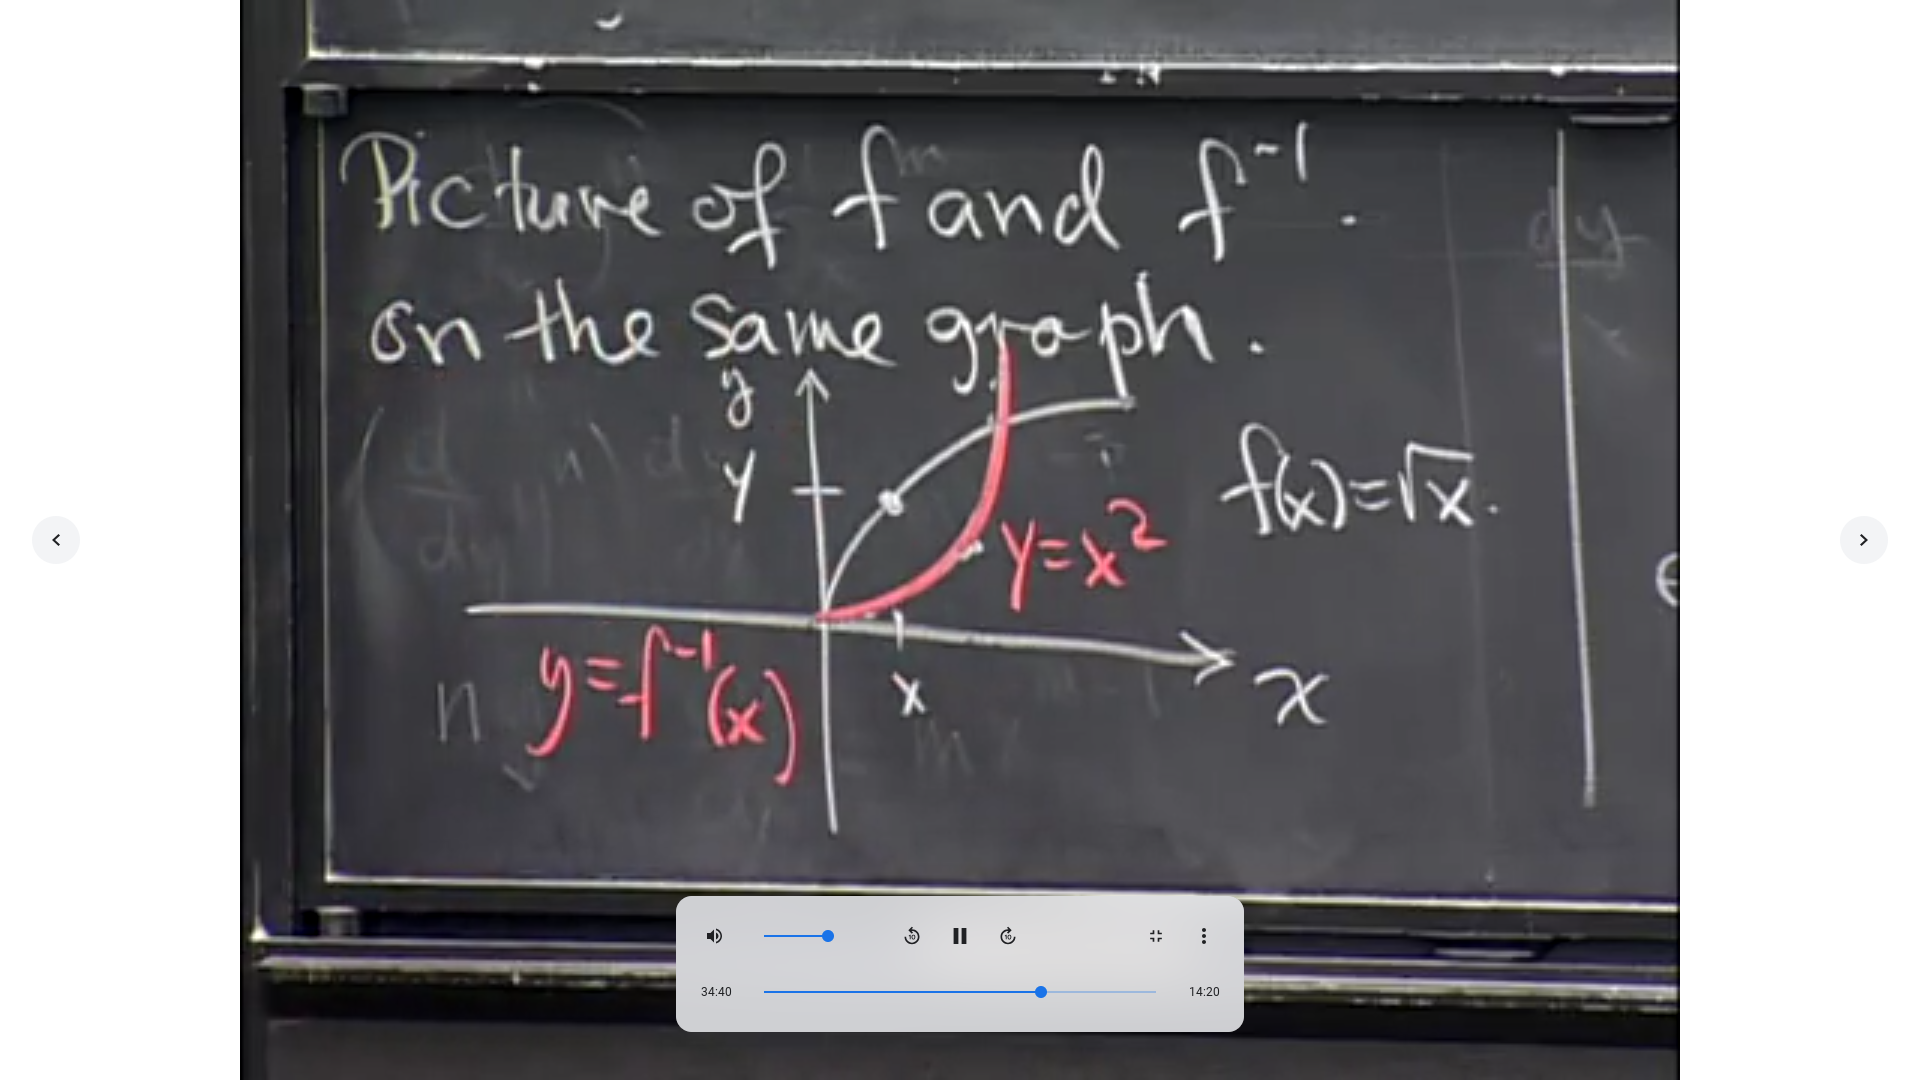 Picture of f and f⁻¹.
on the same graph.
y
y
f(x)=√x.
y=x²
y=f⁻¹(x)
x
x
34:40
14:20